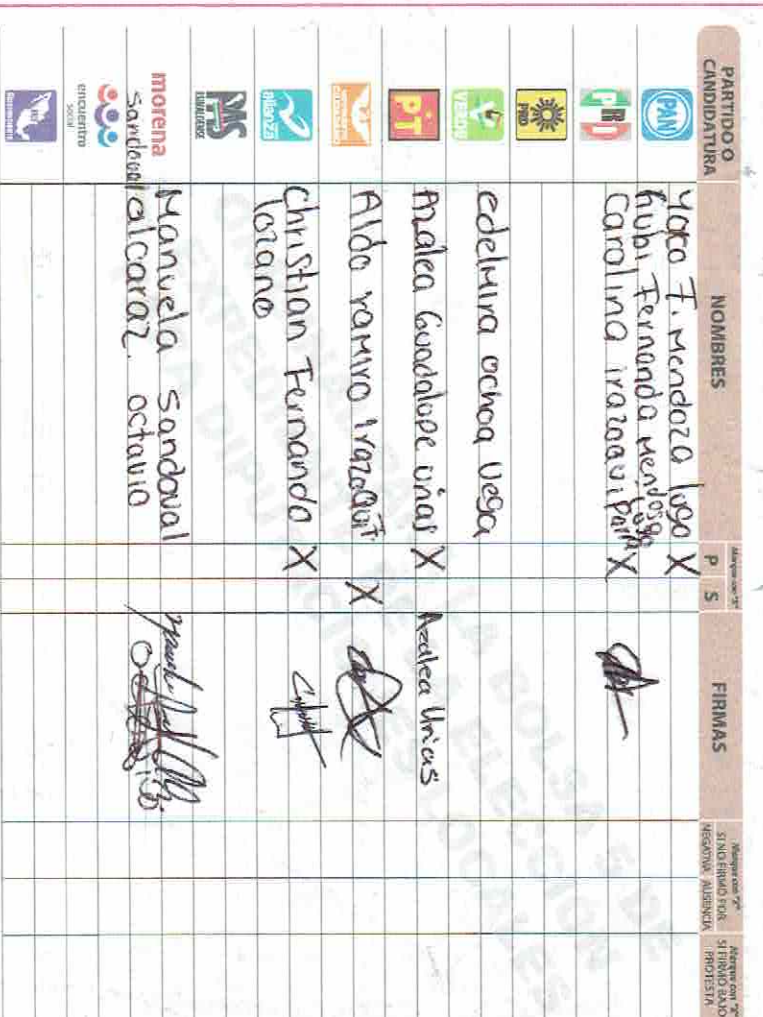 PARTIDO O CANDIDATURA
NOMBRES
Marque con "X"
P S
FIRMAS
Marque con "X" SI NO FIRMÓ POR
NEGATIVA AUSENCIA
Marque con "X" SI FIRMÓ BAJO PROTESTA
PAN
Yaco F. Mendoza lugo X
Rubi Fernanda Mendosa lugo
PRI
Carolina irazoqui parra X
PRD
VERDE
edelmira ochoa Vega
PT
Azalea Guadalupe urias X Azalea Urias
Aldo ramiro irazoqui X
alianza
Christian Fernando X
lozano
PAS
SINALOENSE
morena
Manuela Sandoval
Sandoval alcaraz. octavio
encuentro social
ORIGINAL PARA LA BOLSA 5 DE
EXPEDIENTE DE LA ELECCIÓN
PARA DIPUTACIONES LOCALES